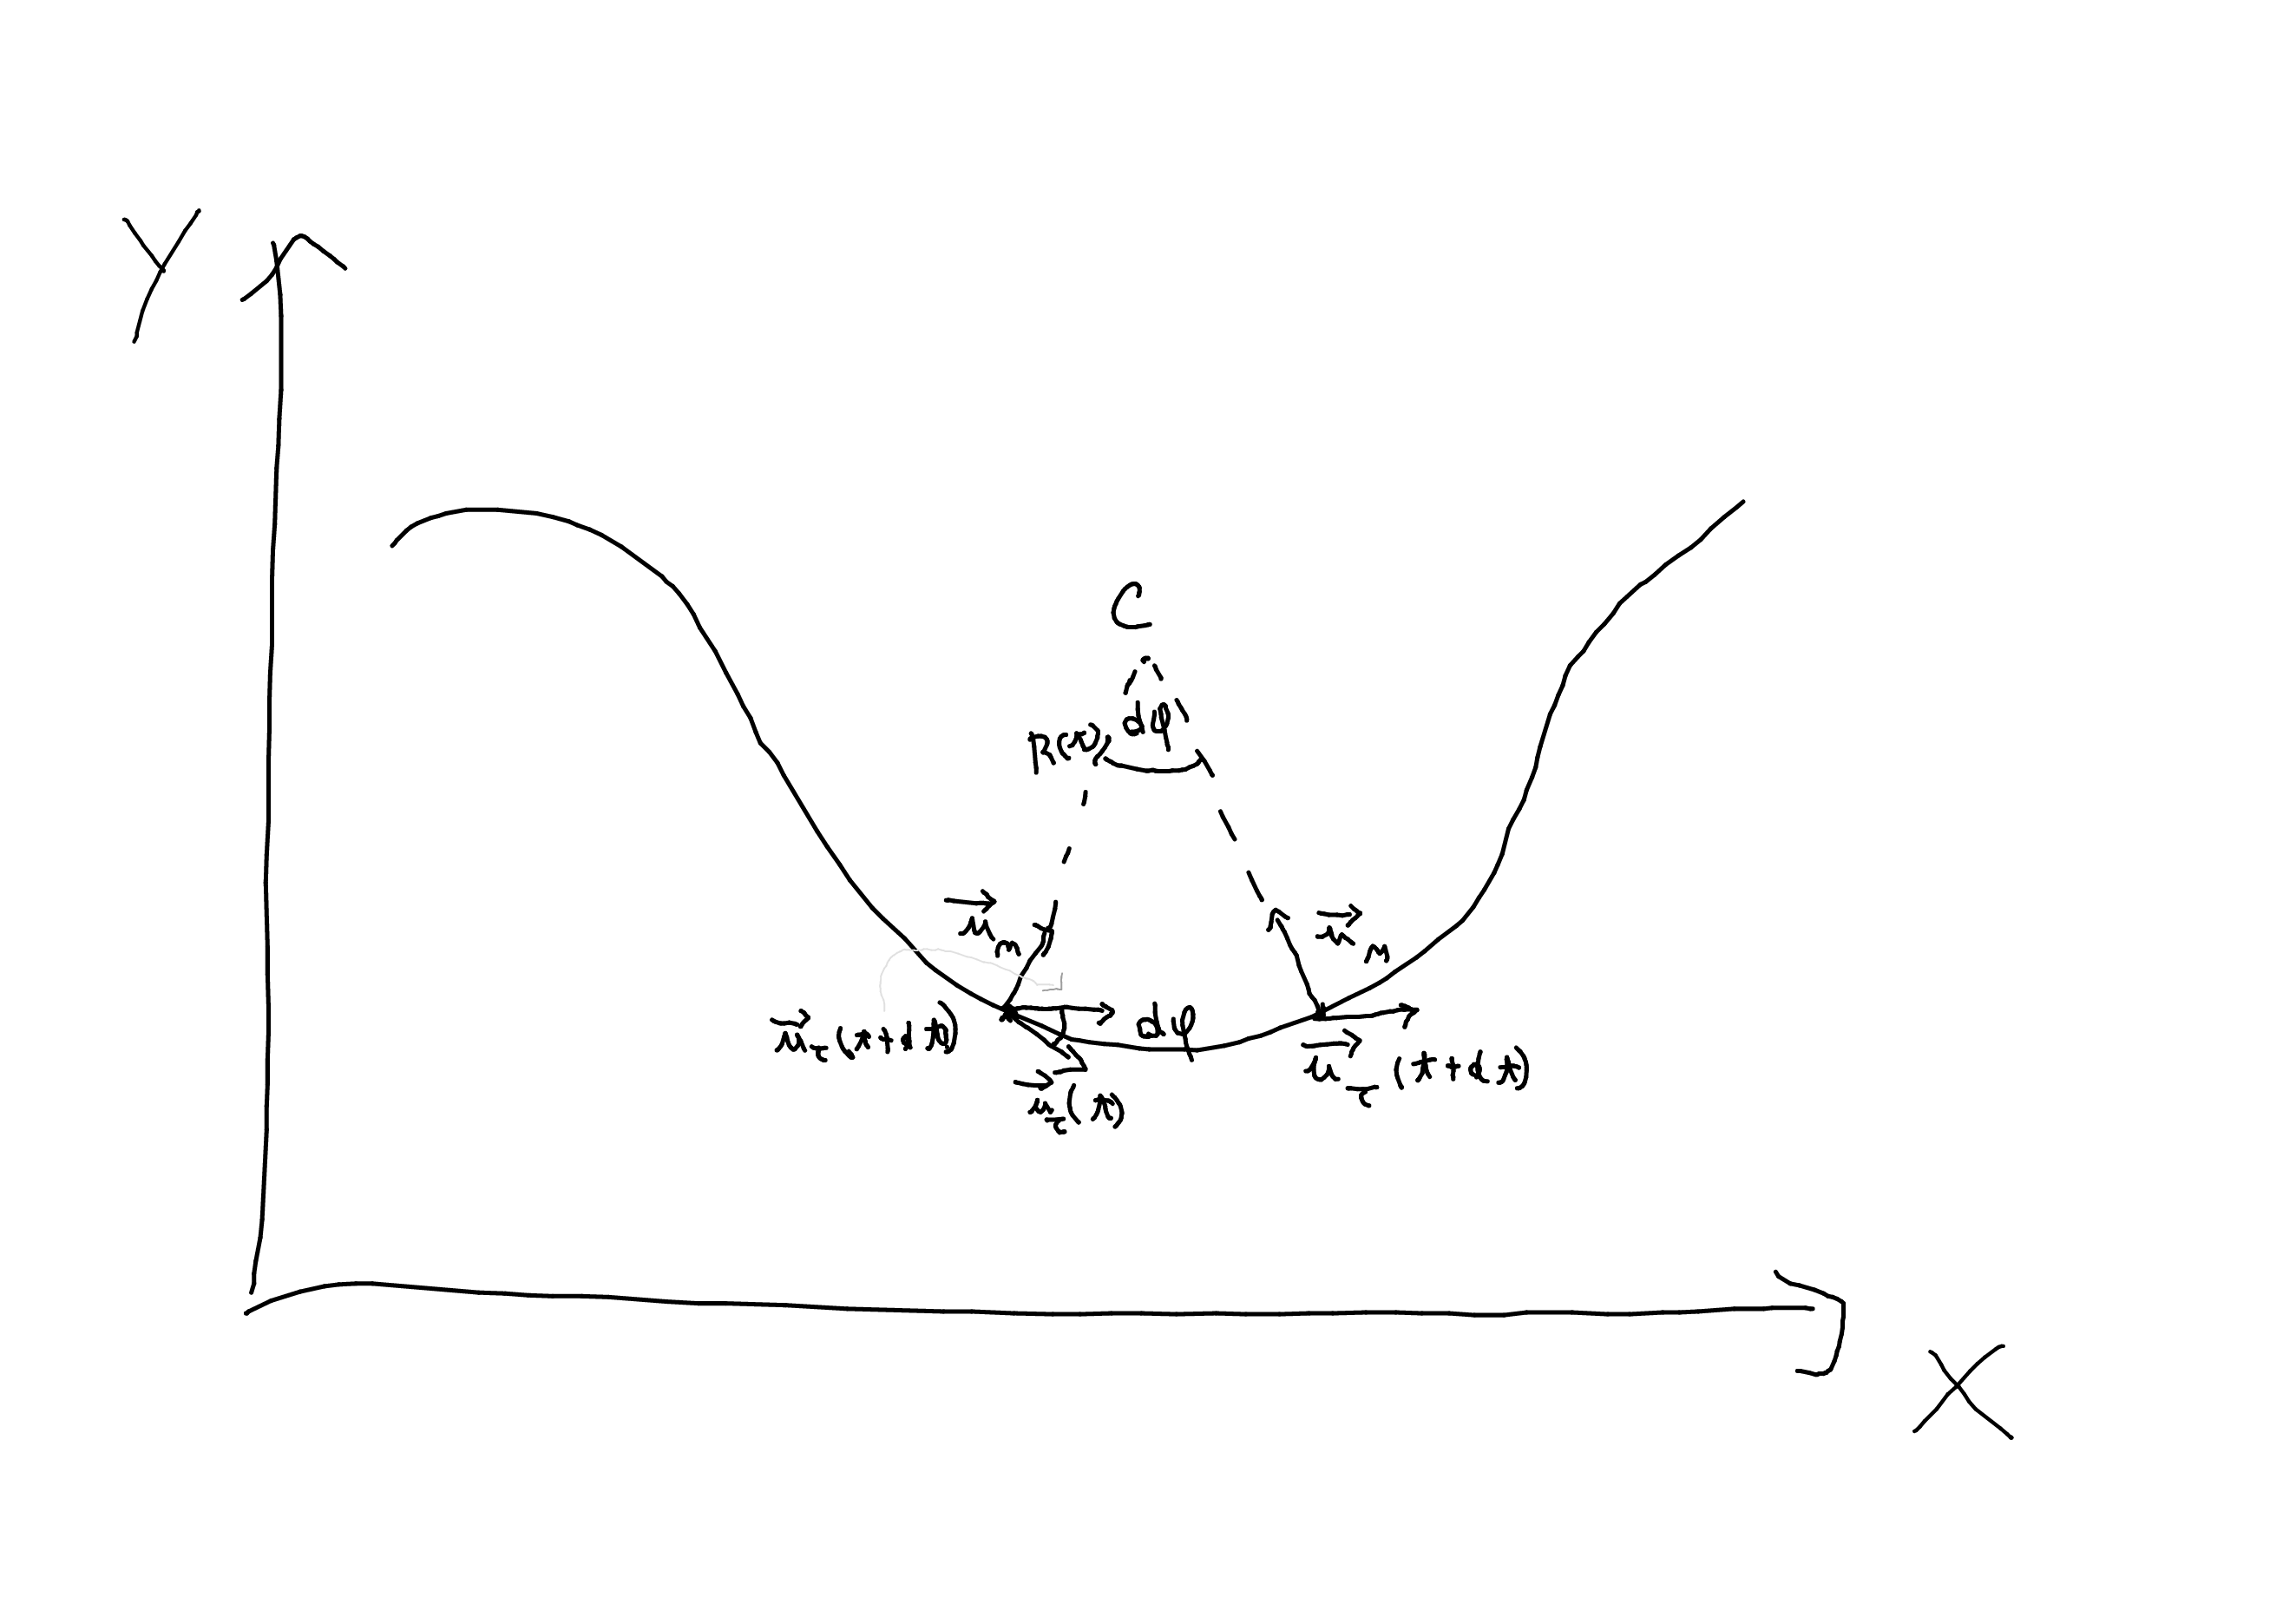 Y
C
R(t) dφ
u⃗_n
u⃗_n
u⃗_τ(t+dt)
dφ
u⃗_τ(t+dt)
u⃗_τ(t)
X